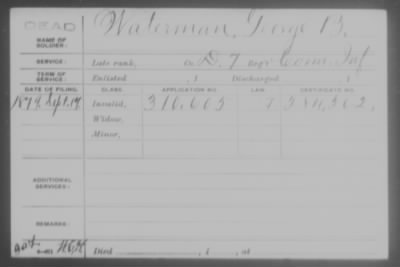 DEAD
Waterman, George B.
NAME OF SOLDIER:
SERVICE: Late rank, Co. D, 7 Reg't Conn Inf
TERM OF SERVICE: Enlisted , 1 Discharged , 1
DATE OF FILING. CLASS. APPLICATION NO. LAW. CERTIFICATE NO.
1879, Sept. Invalid, 310,605
Widow,
Minor,
ADDITIONAL SERVICES:
REMARKS:
Died , 1 , at